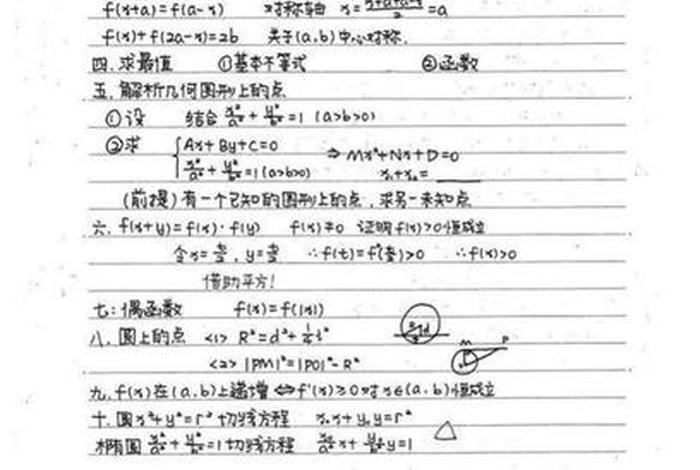 f(x+a)=f(a-x) 对称轴 x=(x+a+a-x)/2=a
f(x)+f(2a-x)=2b 关于(a,b)中心对称.
四.求最值 ①基本不等式 ②函数
五.解析几何图形上的点
①设 结合 x²/a²+y²/b²=1 (a>b>0)
②求 { Ax+By+C=0
x²/a²+y²/b²=1(a>b>0) ⇒ Mx²+Nx+D=0
x₁+x₂=____
(前提)有一个已知的图形上的点,求另一未知点
六. f(x+y)=f(x)·f(y) f(x)≠0 证明f(x)>0恒成立
令x=t/2, y=t/2 ∴f(t)=f²(t/2)>0 ∴f(x)>0
借助平方!
七:偶函数 f(x)=f(|x|)
八.圆上的点 <1> R²=d²+¼l²
d
<2> |PM|²=|PO|²-R²
M P
九.f(x)在(a,b)上递增⇔f'(x)≥0对x∈(a,b)恒成立
十.圆x²+y²=r²切线方程 x₀x+y₀y=r²
椭圆 x²/a²+y²/b²=1切线方程 x₀/a² x+y₀/b² y=1